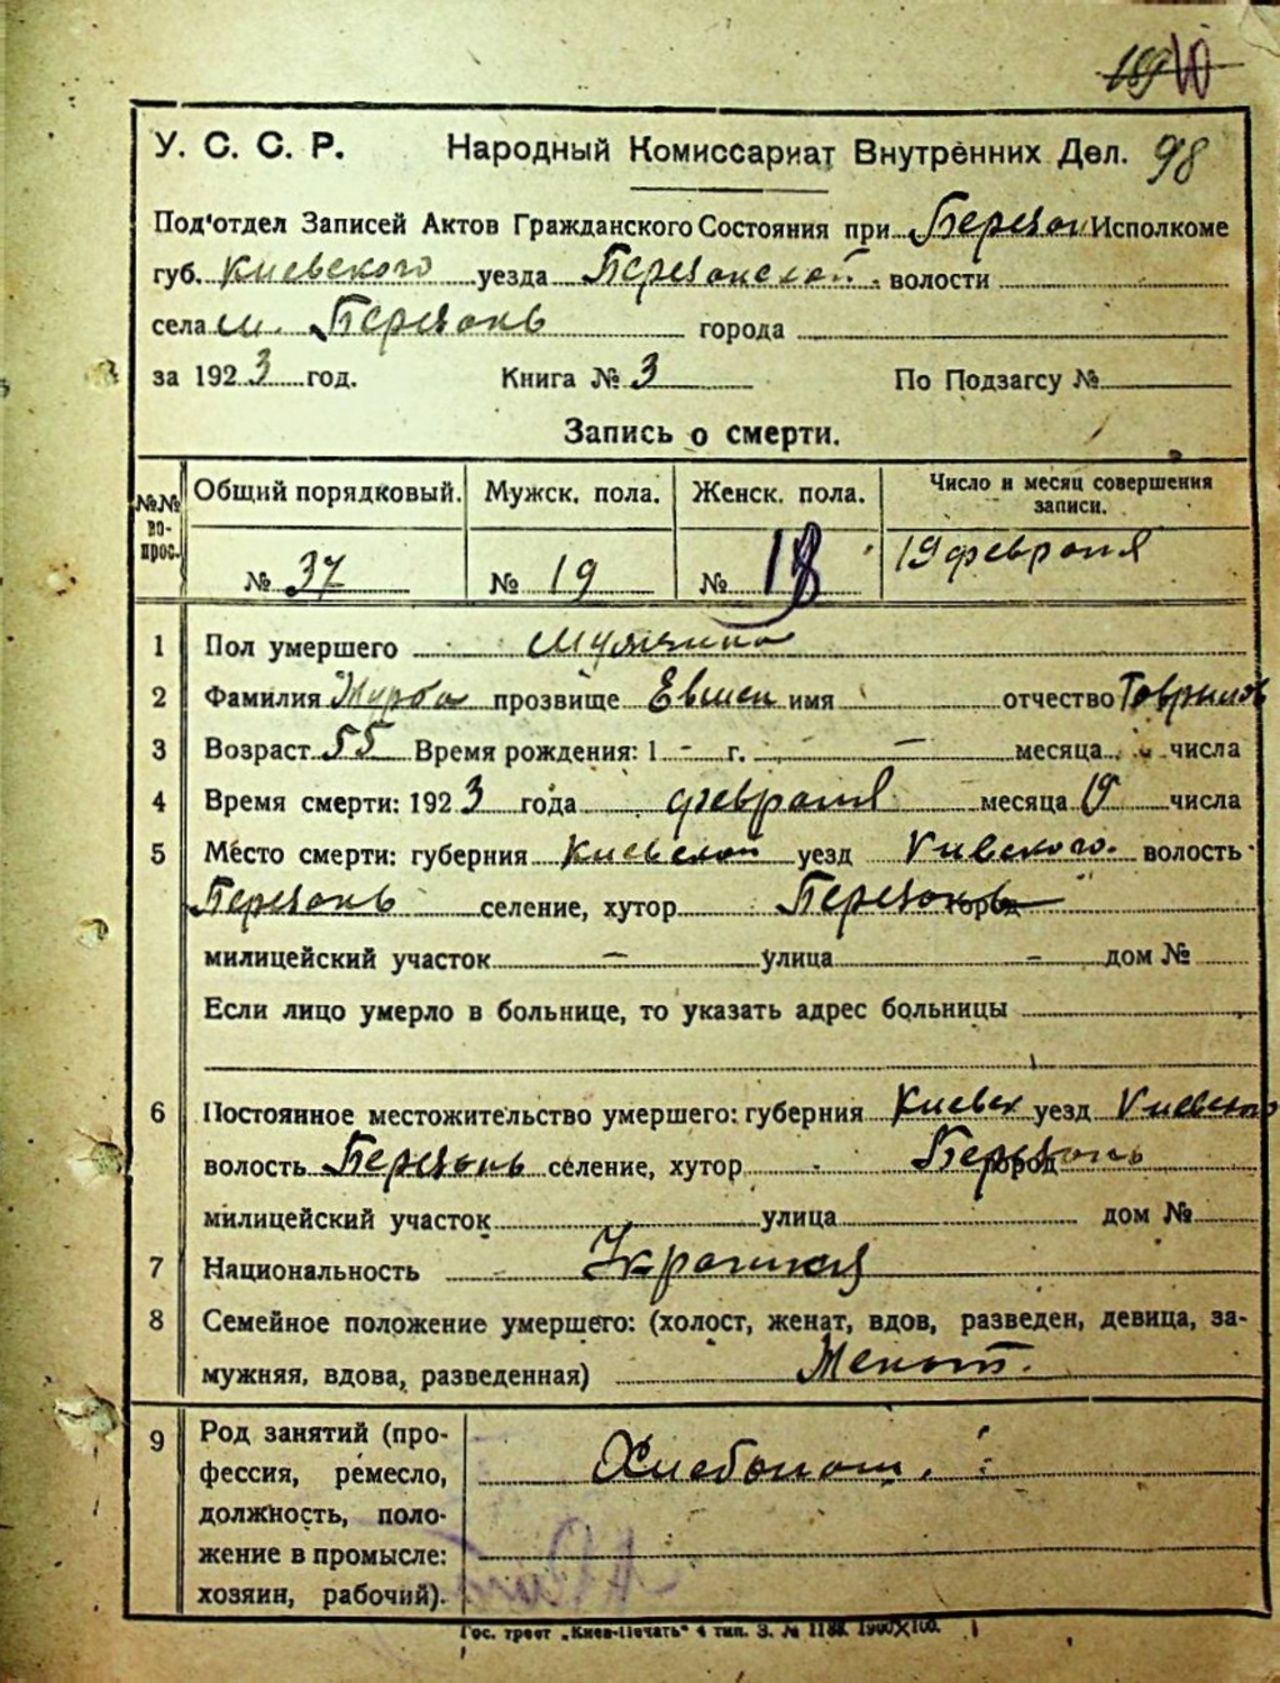 98
У. С. С. Р. Народный Комиссариат Внутренних Дел.
Под'отдел Записей Актов Гражданского Состояния при Березан Исполкоме
губ. Киевского уезда Березанской волости
села м. Березань города
за 1923 год. Книга № 3 По Подзагсу №
Запись о смерти.
№№ во-прос. Общий порядковый. Мужск. пола. Женск. пола. Число и месяц совершения записи.
№ 37 № 19 № 18 19 февраля
1 Пол умершего Мужчина
2 Фамилия Журба прозвище имя отчество Гаврилов
3 Возраст 55 Время рождения: 1 - г. — месяца числа
4 Время смерти: 1923 года февраля месяца 19 числа
5 Место смерти: губерния Киевской уезд Киевского волость
Березань селение, хутор Березань город
милицейский участок — улица — дом №
Если лицо умерло в больнице, то указать адрес больницы
6 Постоянное местожительство умершего: губерния Киевск уезд Киевского
волость Березань селение, хутор Березань город
милицейский участок улица дом №
7 Национальность
8 Семейное положение умершего: (холост, женат, вдов, разведен, девица, за-
мужняя, вдова, разведенная) Женат.
9 Род занятий (про-
фессия, ремесло,
должность, поло-
жение в промысле:
хозяин, рабочий).
Хлебопаш.
Гос. трест „Киев-Печать“ 4 тип. З. № 1188. 1900×100.